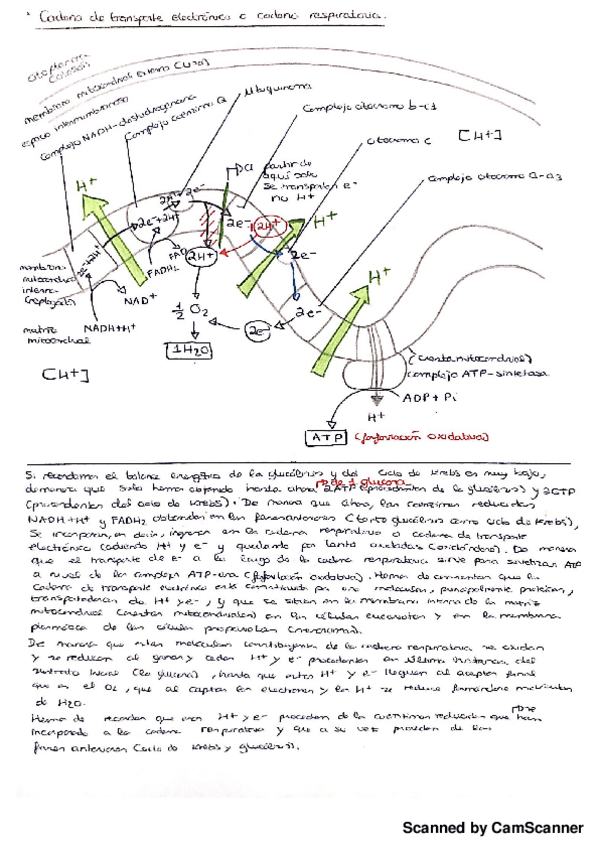 * Cadena de transporte electrónico o cadena respiratoria.
citoplasma
membrana mitocondrial externa (lisa)
espacio intermembranoso
complejo NADH-deshidrogenasa
complejo coenzima Q
ubiquinona
complejo citocromo b-c1
citocromo c
[H+]
complejo citocromo a-a3
H+
2H+ 2e-
a partir de
aquí solo
se transportan e-
no H+
2e-+2H+
2e-
2H+
H+
2e-
2e-+2H+
FADH2
FAD
2H+
H+
membrana
mitocondrial
interna
(replegada)
NAD+
NADH+H+
matriz
mitocondrial
1/2 O2
2e-
2e-
1H2O
[H+]
(cresta mitocondrial)
complejo ATP-sintetasa
ADP + Pi
H+
ATP (fosforilación oxidativa)
Si recordamos el balance energético de la glucólisis y del ciclo de Krebs es muy bajo,
de 1 glucosa
demanera que solo hemos obtenido hasta ahora 2ATP (procedentes de la glucólisis) y 2GTP
(procedentes del ciclo de Krebs). De manera que ahora, las coenzimas reducidas
NADH+H+ y FADH2 obtenidas en las fases anteriores (tanto glucólisis como ciclo de Krebs),
se incorporan, es decir, ingresan en la cadena respiratoria o cadena de transporte
electrónico cediendo H+ y e- y quedando por tanto oxidadas (oxidándose). De manera
que el transporte de e- a lo largo de la cadena respiratoria sirve para sintetizar ATP
a nivel de los complejos ATP-asa (fosforilación oxidativa). Hemos de comentar que la
cadena de transporte electrónico está constituida por moléculas, principalmente proteínas,
transportadoras de H+ y e-, y que se sitúan en la membrana interna de la matriz
mitocondrial (crestas mitocondriales) en las células eucariotas y en la membrana
plasmática de las células procariotas (mesosomas).
De manera que estas moléculas constituyentes de la cadena respiratoria se oxidan
y se reducen al ganar y ceder H+ y e- procedentes en última instancia del
sustrato inicial (la glucosa), hasta que estos H+ y e- lleguen al aceptor final
que es el O2, que al captar los electrones y los H+ se reduce formándose moléculas
de H2O.
Hemos de recordar que esos H+ y e- proceden de las coenzimas reducidas que
se han
incorporado a la cadena respiratoria y que a su vez proceden de las
fases anteriores (ciclo de Krebs y glucólisis).
Scanned by CamScanner